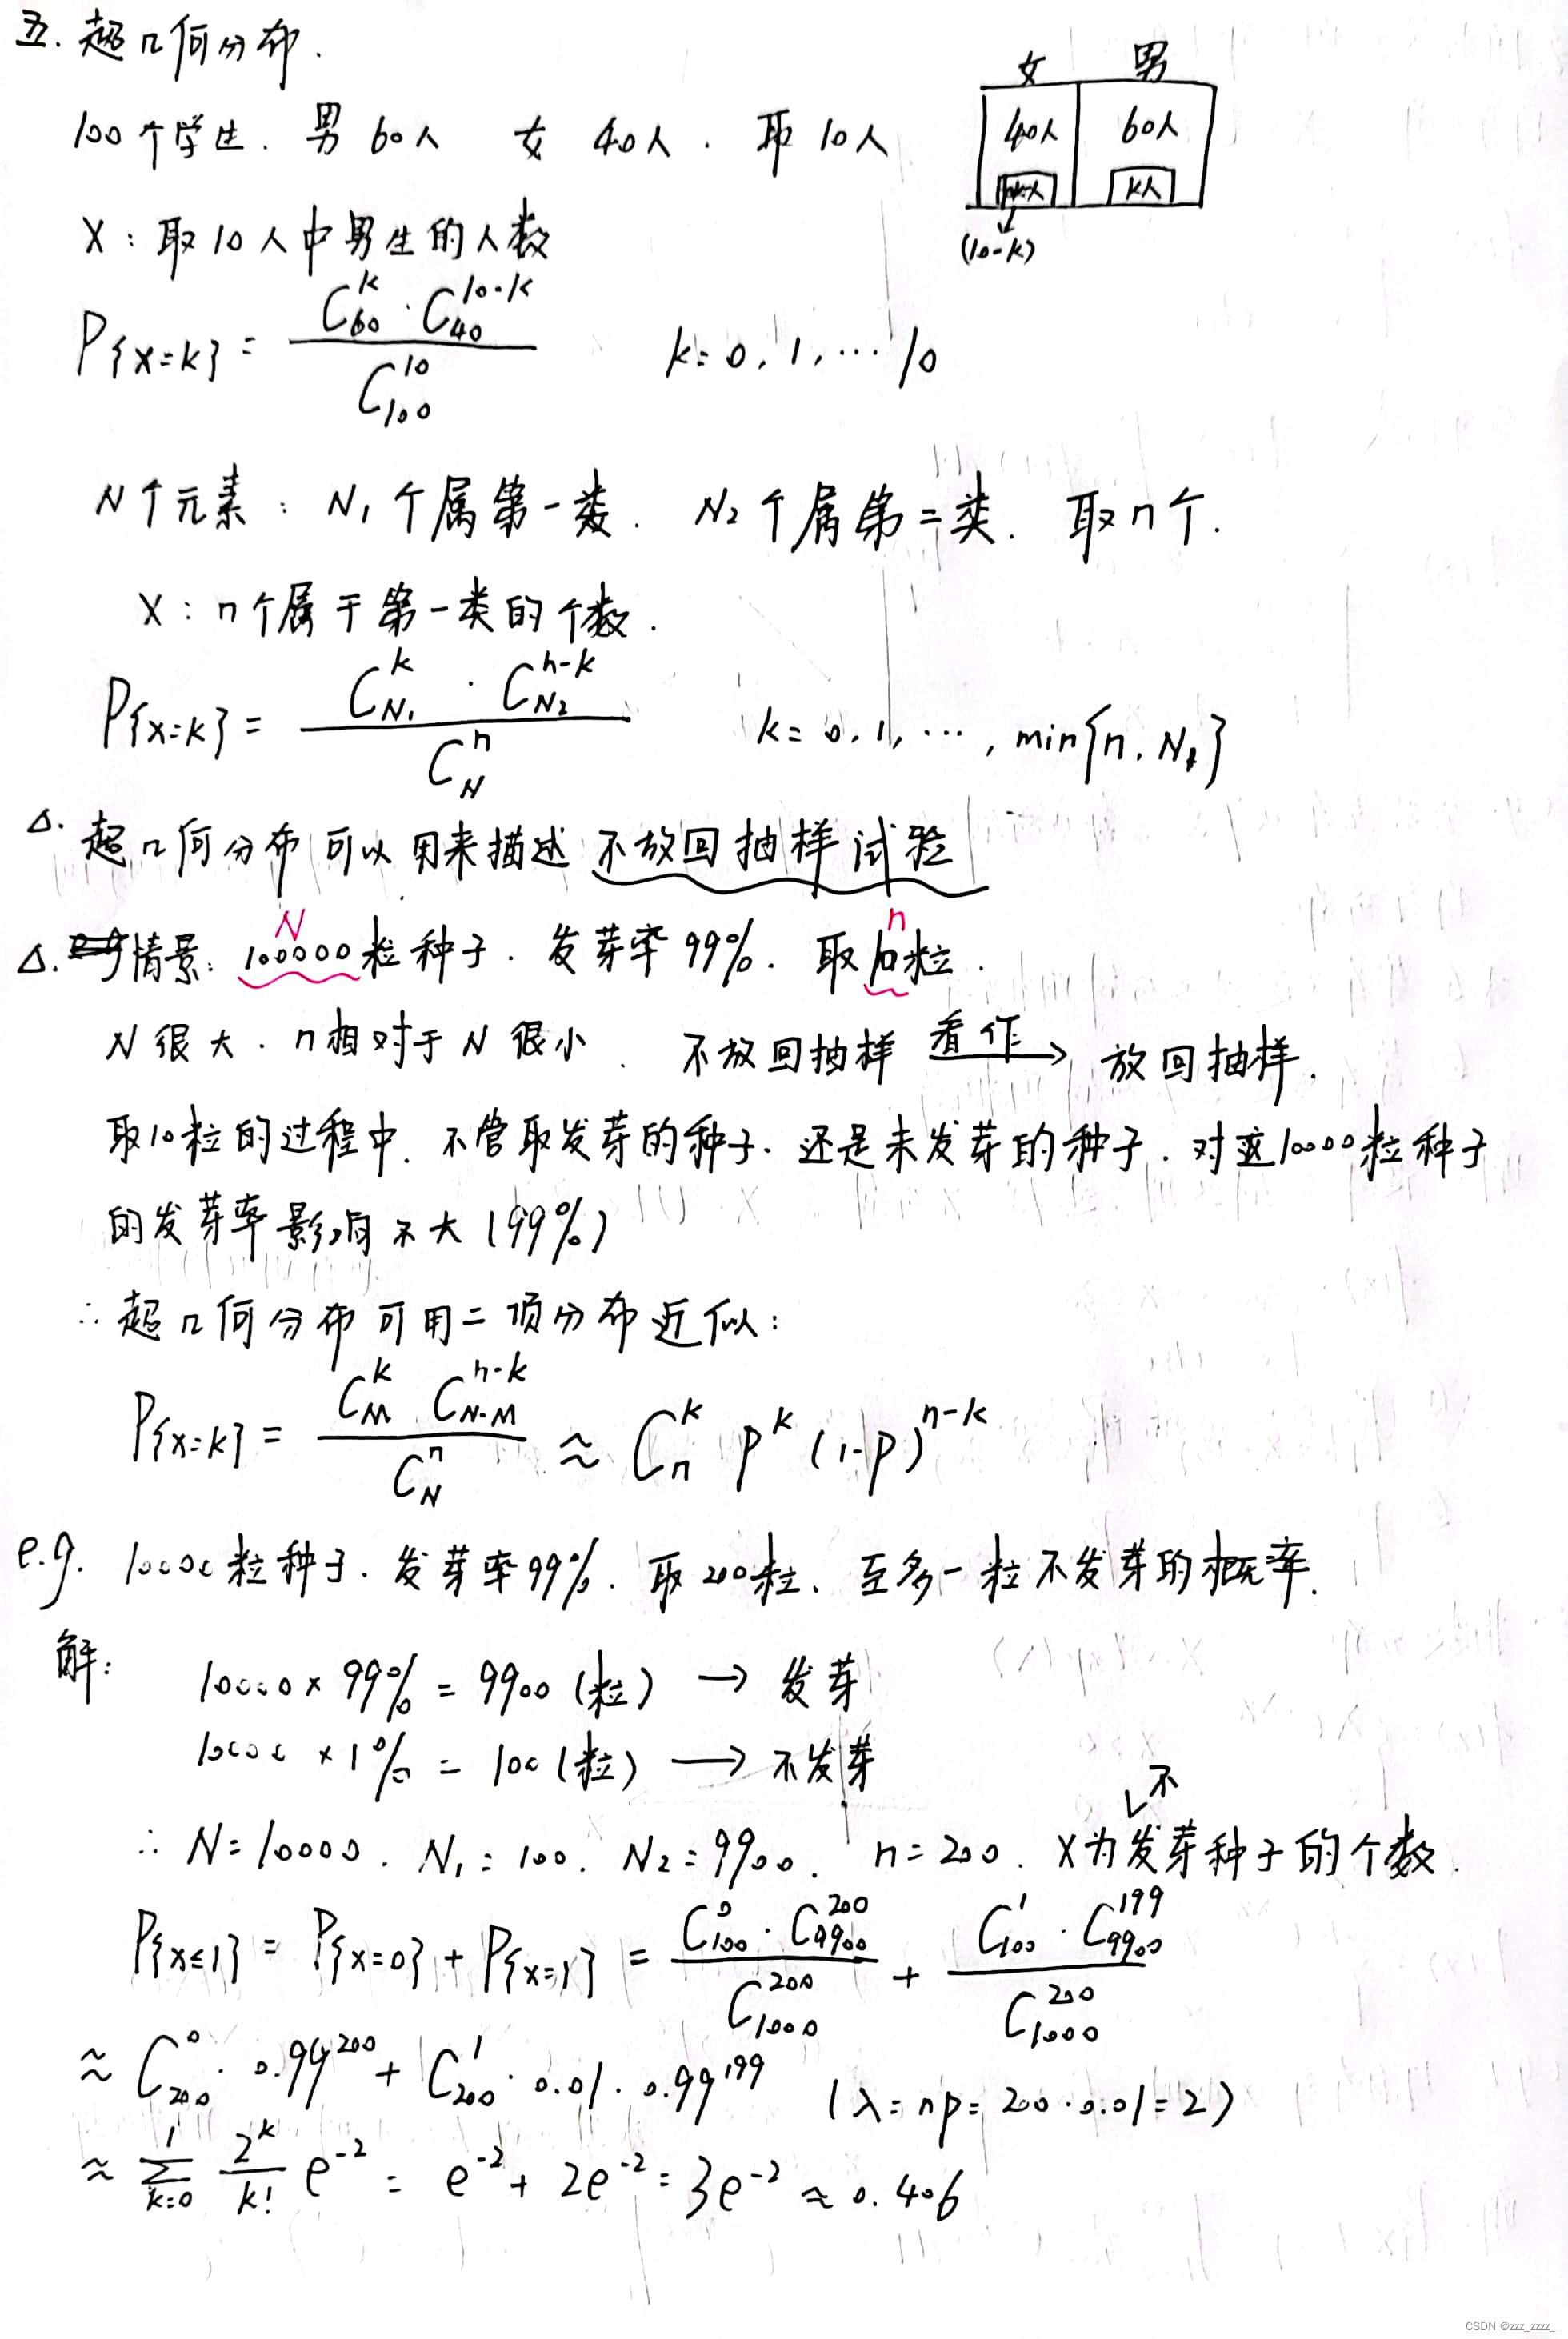 五. 超几何分布.
100个学生. 男60人 女40人. 取10人
女 男
40人 60人
k人
(10-k)
X：取10人中男生的人数
P{X=k} = \frac{C_{60}^{k} · C_{40}^{10-k}}{C_{100}^{10}} k=0,1,…10
N个元素：N₁个属第一类. N₂个属第二类. 取n个.
X：n个属于第一类的个数.
P{X=k} = \frac{C_{N_1}^{k} · C_{N_2}^{n-k}}{C_{N}^{n}} k=0,1,…,min{n,N₁}
△. 超几何分布可以用来描述不放回抽样试验
N n
△. 情景：100000粒种子. 发芽率99%. 取10粒.
N很大. n相对于N很小. 不放回抽样 看作→ 放回抽样.
取10粒的过程中. 不管取发芽的种子. 还是未发芽的种子. 对这10000粒种子
的发芽率影响不大(99%)
∴超几何分布可用二项分布近似：
P{X=k} = \frac{C_{M}^{k} C_{N-M}^{n-k}}{C_{N}^{n}} ≈ C_{n}^{k} p^{k} (1-p)^{n-k}
e.g. 10000粒种子. 发芽率99%. 取200粒. 至多一粒不发芽的概率.
解： 10000×99% = 9900(粒) → 发芽
10000×1% = 100(粒) → 不发芽
不
∴ N=10000. N₁=100. N₂=9900. n=200. X为发芽种子的个数.
P{X≤1} = P{X=0} + P{X=1} = \frac{C_{100}^{0} · C_{9900}^{200}}{C_{1000}^{200}} + \frac{C_{100}^{1} · C_{9900}^{199}}{C_{1000}^{200}}
≈ C_{200}^{0} · 0.99^{200} + C_{200}^{1} · 0.01 · 0.99^{199} (λ=np=200·0.01=2)
≈ \sum_{k=0}^{1} \frac{2^{k}}{k!} e^{-2} = e^{-2} + 2e^{-2} = 3e^{-2} ≈ 0.406
CSDN @zzz_zzzz_